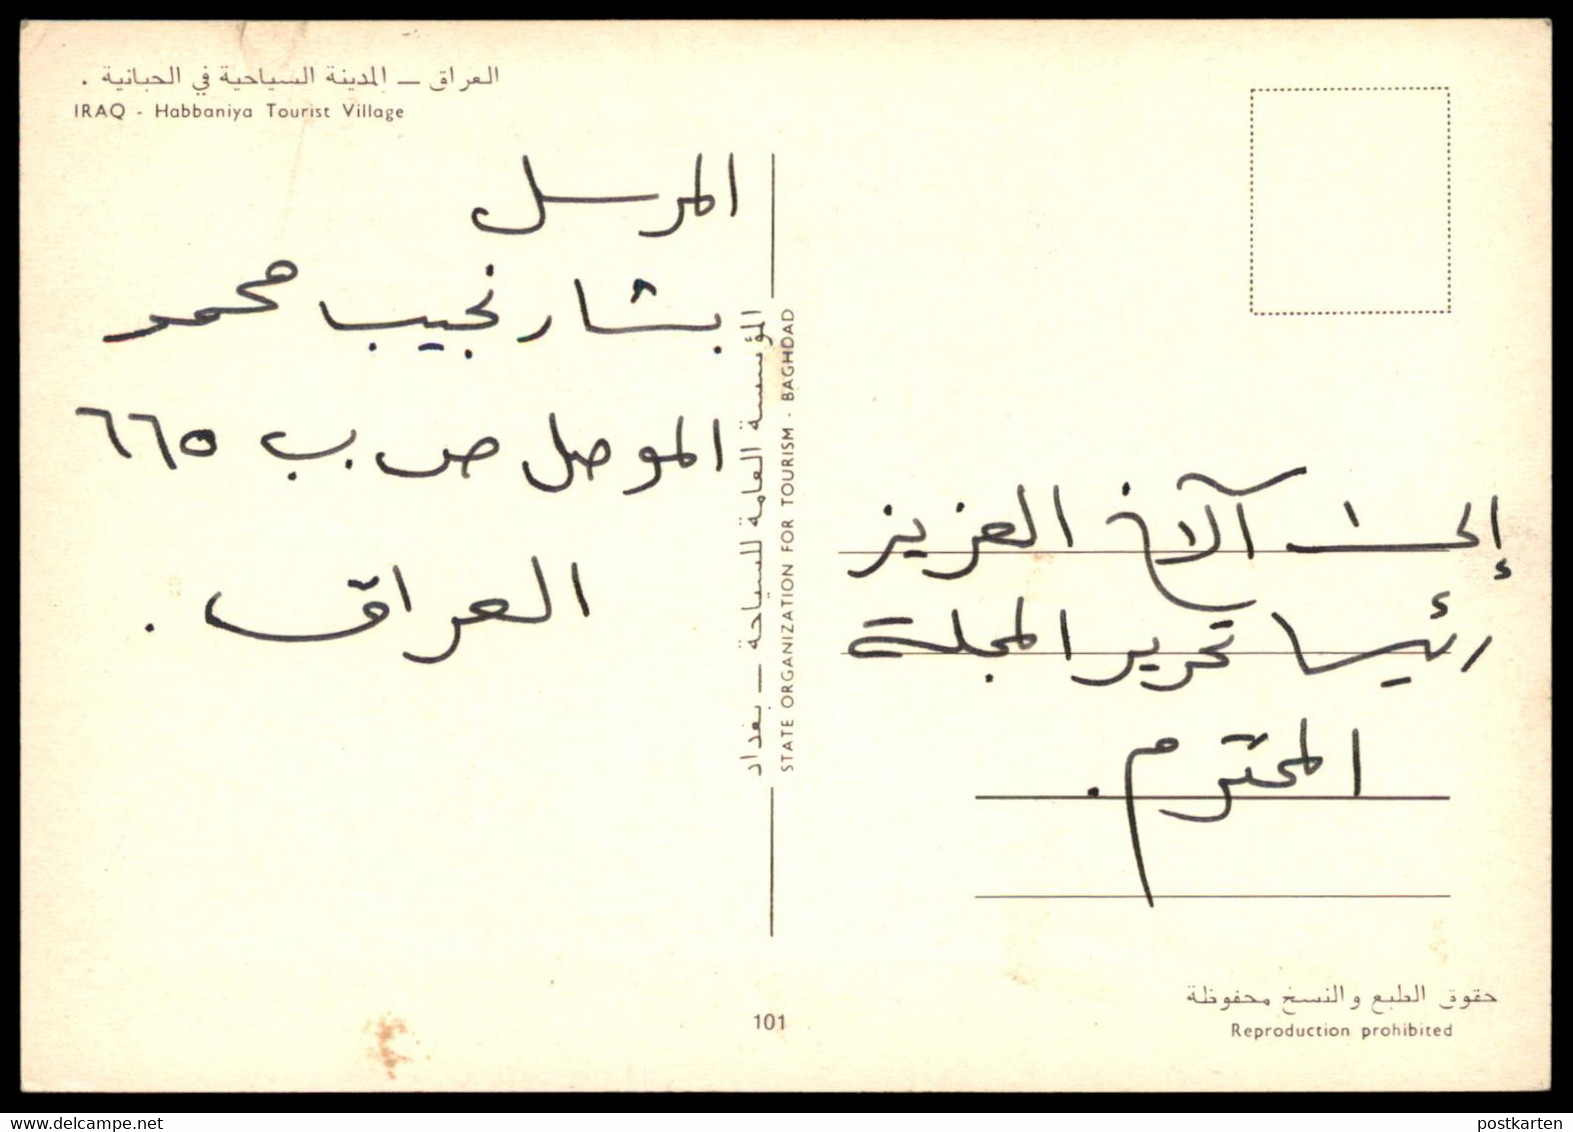 العراق ــ المدينة السياحية في الحبانية .
IRAQ - Habbaniya Tourist Village
المرسل
بشار نجيب محمد
الموصل ص.ب ٦٦٥
العراق .
المؤسسة العامة للسياحة ــ بغداد
STATE ORGANIZATION FOR TOURISM - BAGHDAD
إلى الآخ العزيز
رئيس تحرير المجلة
المحترم .
حقوق الطبع والنسخ محفوظة
Reproduction prohibited
101
postkarten